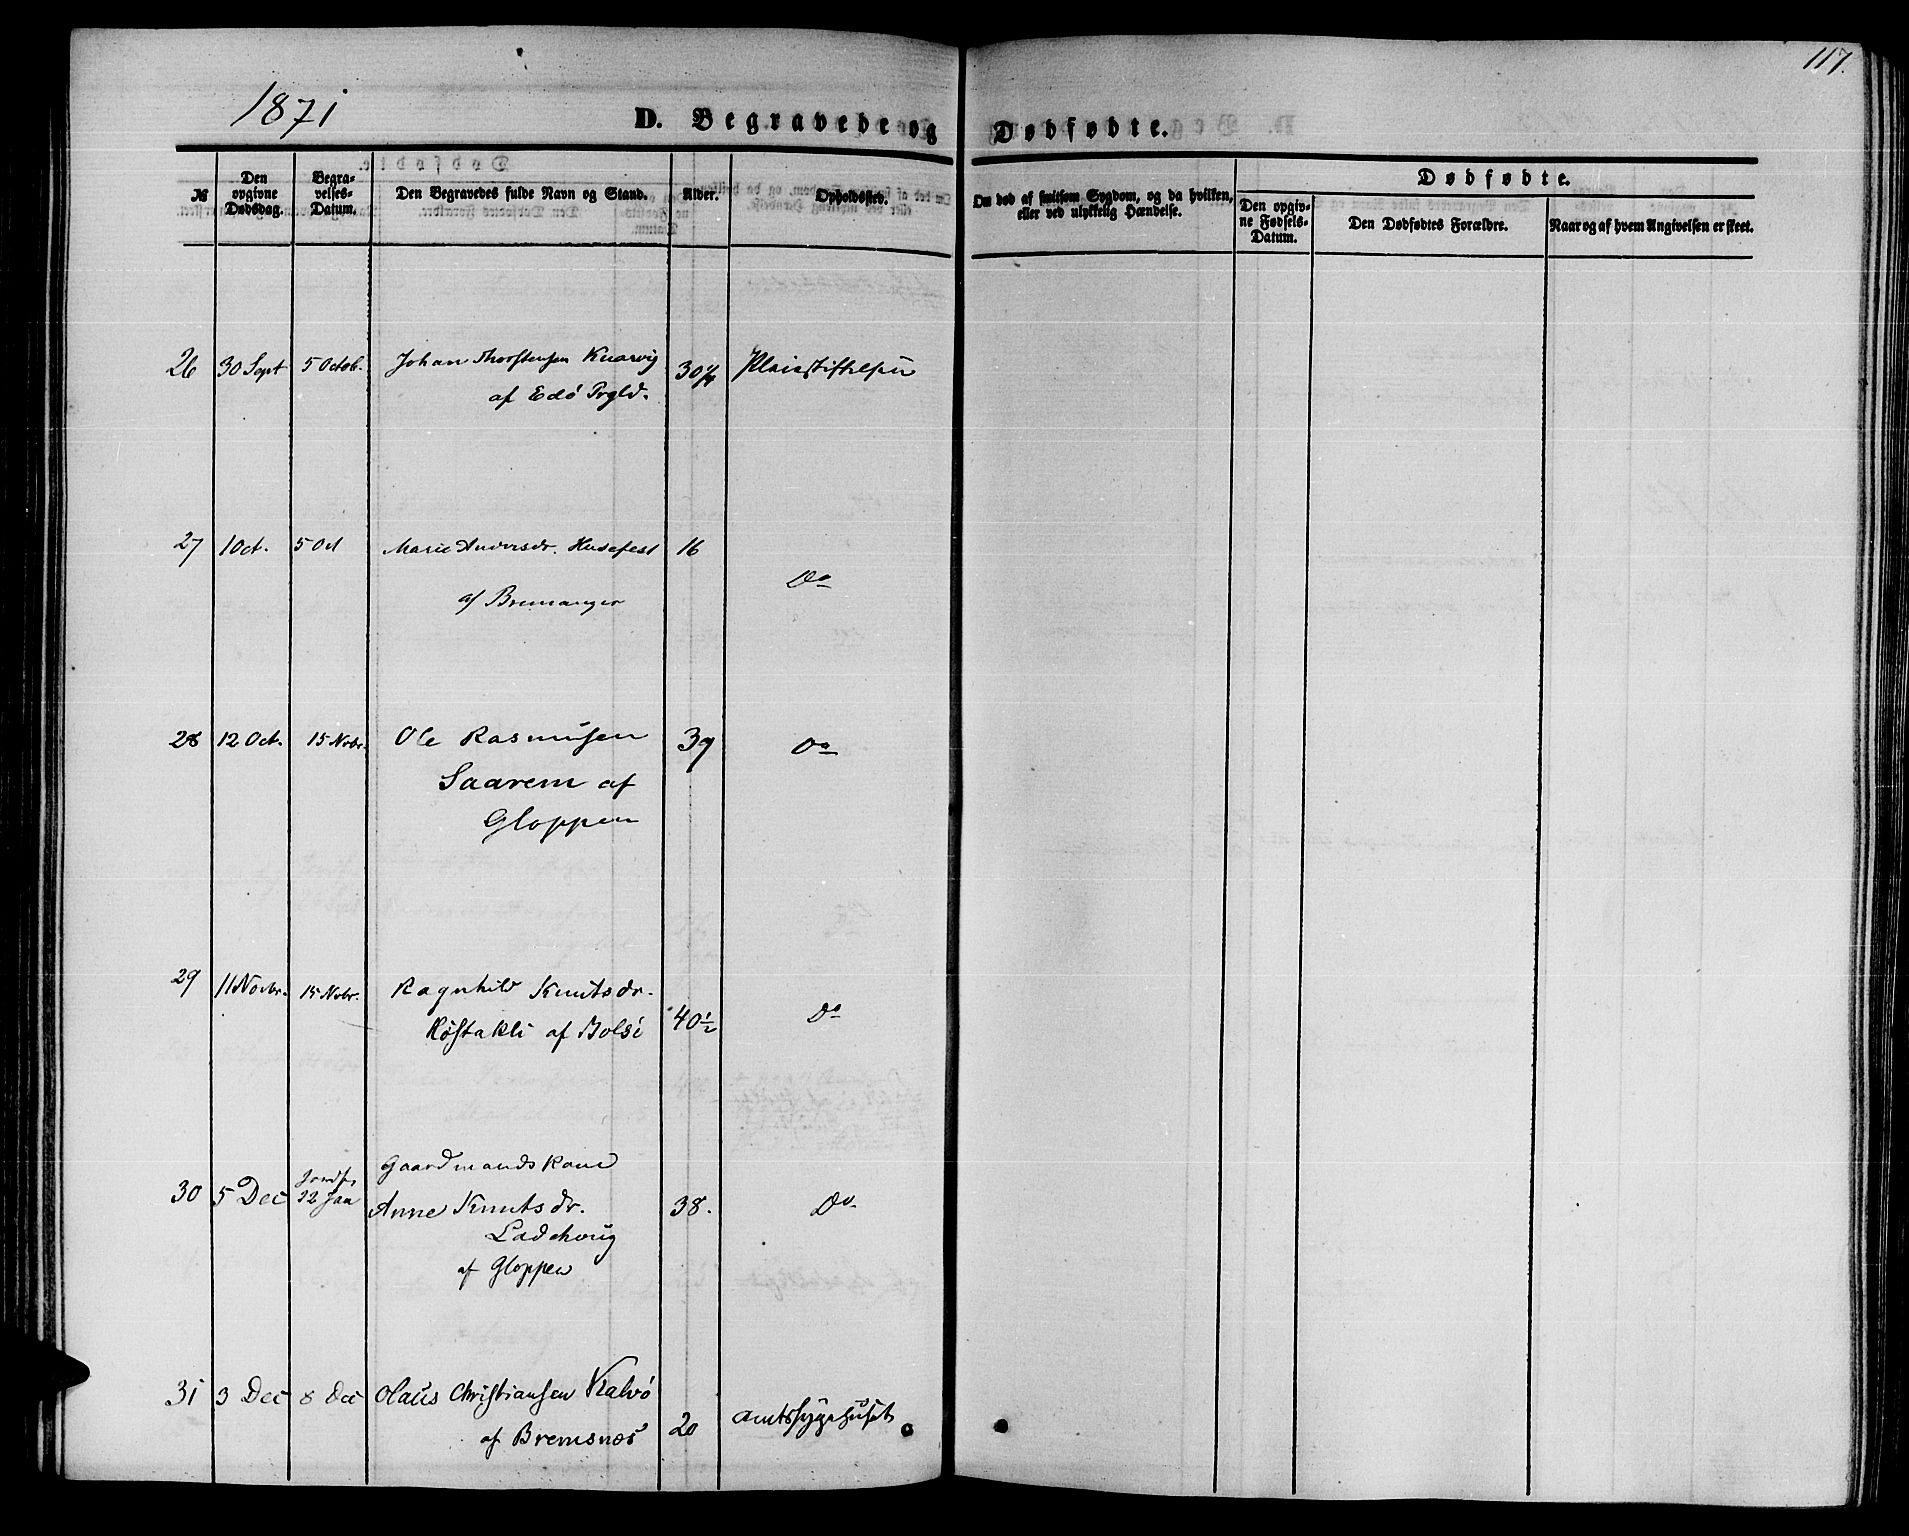 117.
1871
D. Begravede og Dødfødte.
№
Den opgivne Dødsdag.
Begravelses-Datum.
Den Begravedes fulde Navn og Stand.
Alder.
Opholdssted.
Om død af smitsom Sygdom, og da hvilken, eller ved ulykkelig Hændelse.
Dødfødte.
Den opgivne Fødsels-Datum.
Den Dødfødtes Forældre.
Naar og af hvem Angivelsen er skeet.
26 30 Sept 5 Octob. Johan Thorstensen Knarvig 30 Pleiestiftelsen
af Edø Prgld.
27 1 Oct. 5 Oct Marie Andersdr. Husefest 16 Do
af Bremanger
28 12 Oct. 15 Novbr. Ole Rasmussen 39 Do
Saarem af
Gloppen
29 11 Novbr. 15 Nvbr. Ragnhild Knutsdr.
Røstakli af Bolsø 40½ Do
Gaardmandskone
30 5 Dec Jordf. 12 Jan Anne Knutsdr. 38. Do
Ladehoug
af Gloppen
31 3 Dec 8 Dec Olaus Christiansen Kalvø
af Bremsnes 20 Amtssygehuset